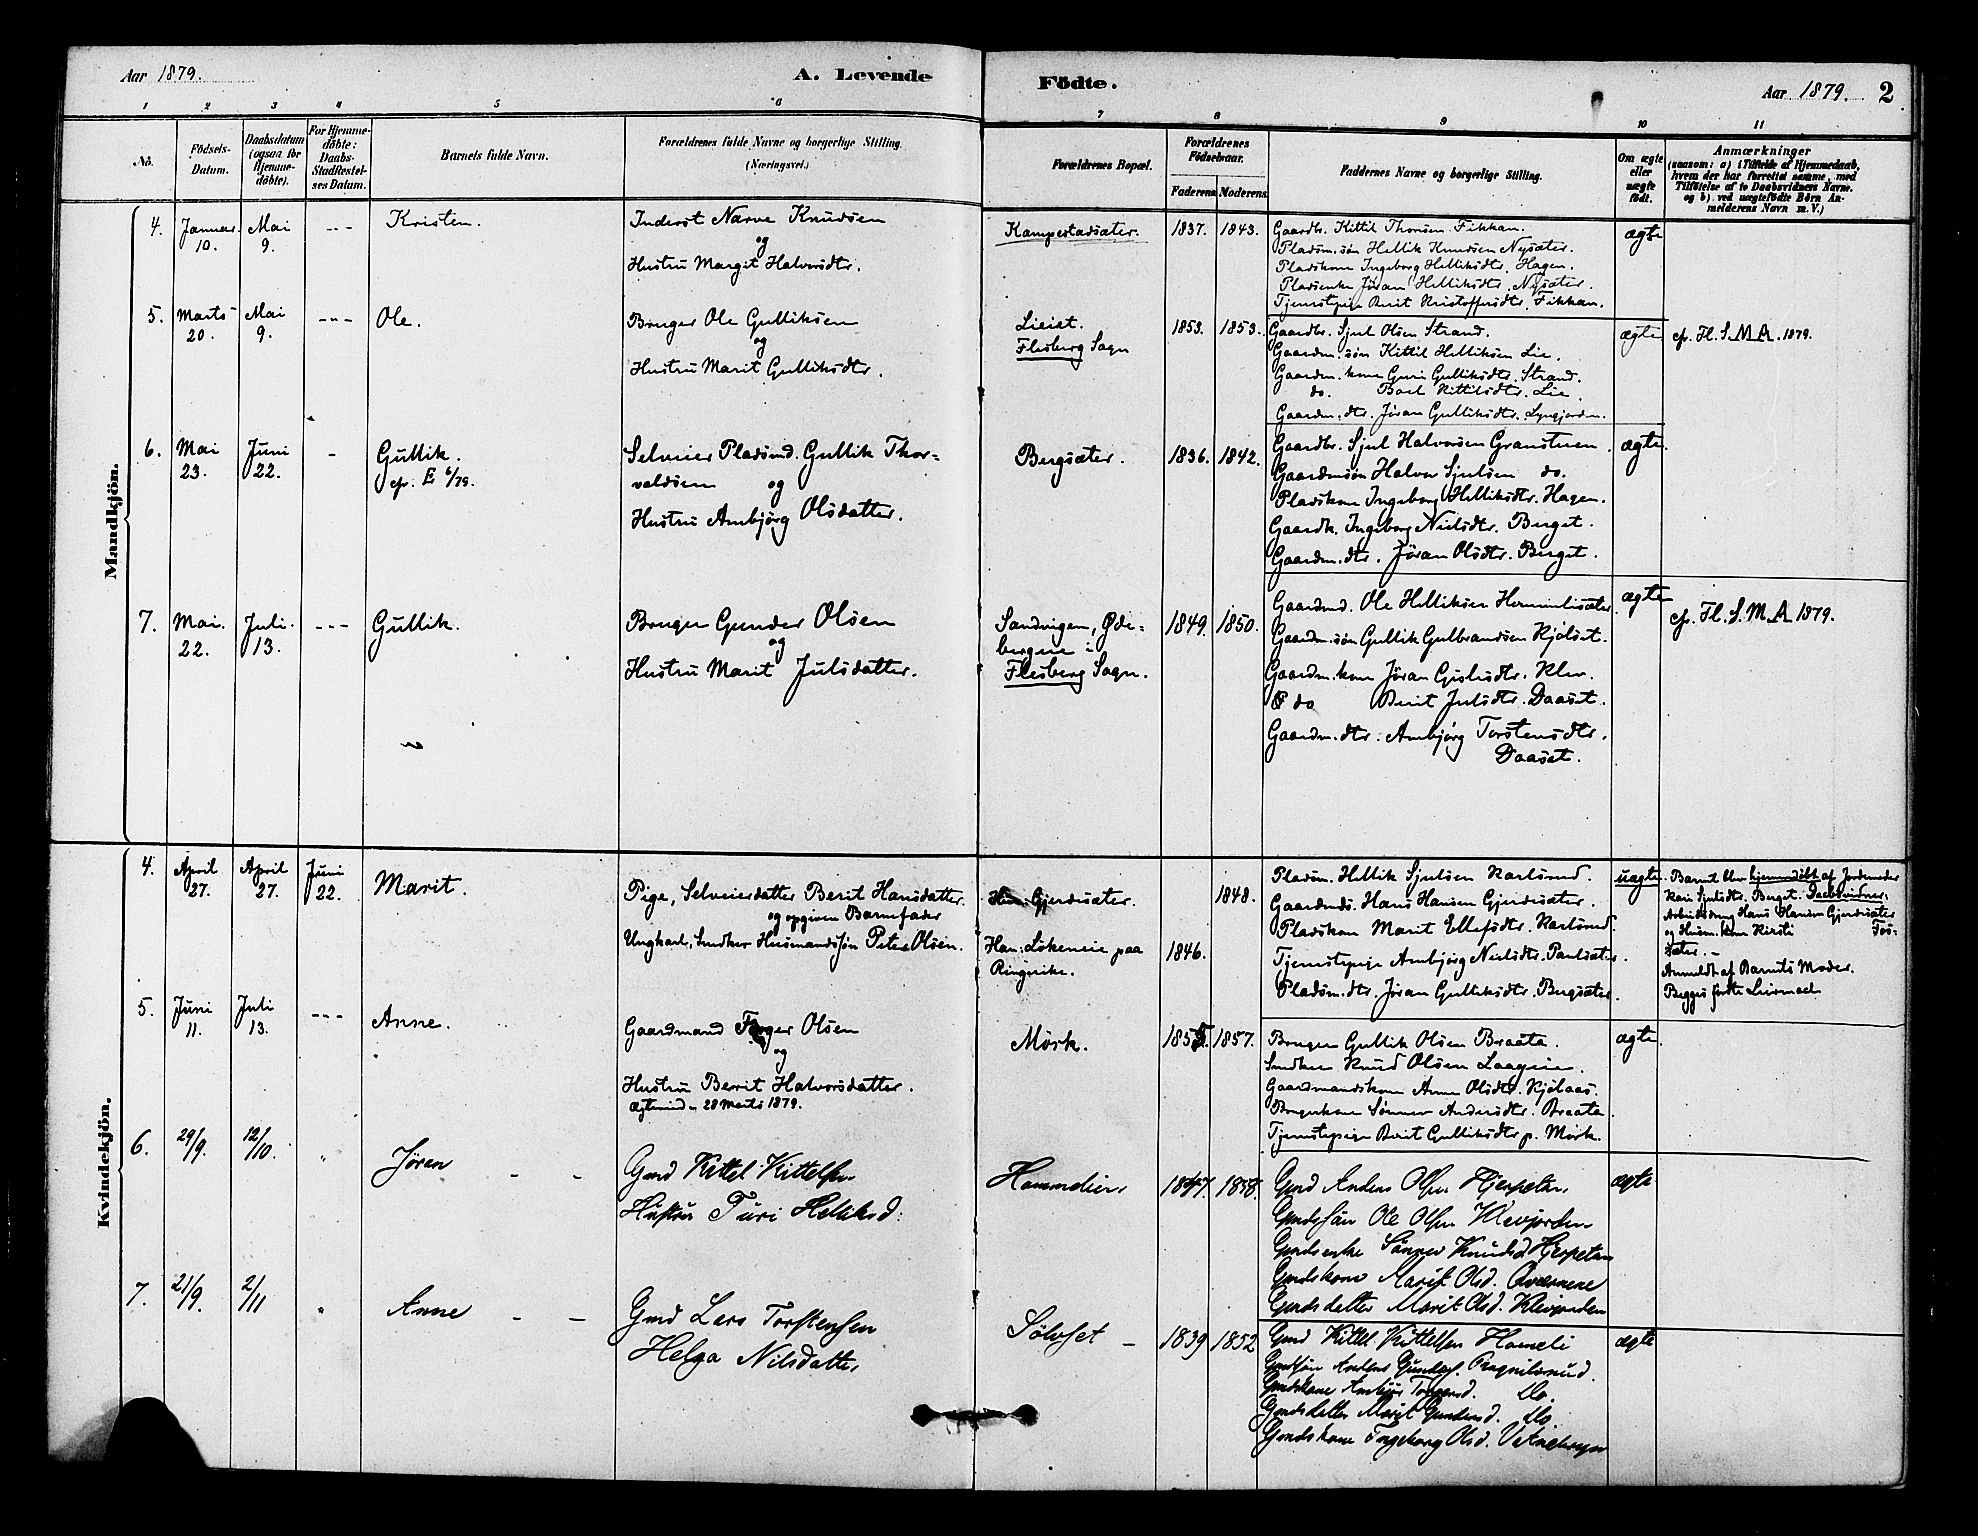 Aar 1879.
A. Levende
Födte.
Aar 1879. 2
1 2 3 4 5 6 7 8 9 10 11
No.
Födsels-
Datum.
Daabsdatum
(ogsaa for
Hjemme-
døbte).
For Hjemme-
døbte:
Daabs-
Stadfæstel-
ses Datum.
Barnets fulde Navn.
Forældrenes fulde Navne og borgerlige Stilling.
(Næringsvei.)
Forældrenes Bopæl.
Forældrenes
Födselsaar.
Faderens. Moderens.
Faddernes Navne og borgerlige Stilling.
Om ægte
eller
uægte
født.
Anmærkninger
(saasom: a) i Tilfælde af Hjemmedaab,
hvem der har forrettet samme, med
Tilföielse af to Daabsvidners Navne.
og b) ved uægtefödte Börn An-
melderens Navn m. V.)
Mandkjön.
4. Januar 10. Mai 9. --- Kristen.
Inderst Narve Knudsen
og
Hustru Margit Halvorsdtr.
Kampestadsæter. 1837. 1843.
Gaardbr. Kittil Thorsen Fikkan.
Pladsm.søn Hellik Knudsen Nysæter.
Pladskone Ingeborg Helliksdtr. Hagen.
Pladsenke Jøran Helliksdtr. Nysæter.
Tjenestepige Berit Kristoffersdtr. Fikkan.
ægte
5. Marts 20. Mai 9. --- Ole.
Bruger Ole Gulliksen
og
Hustru Marit Gulliksdtr.
Lieiet.
Flesberg Sogn
1853. 1853.
Gaardbr. Sjul Olsen Strand.
Gaardm.søn Kittil Helliksen Lie.
Gaardm.kone Guri Gulliksdtr. Strand.
do. Boel Kittilsdtr. Lie.
Gaardm.dtr. Jøran Gulliksdtr. Lyngjordm.
ægte cfr. Fl. S. M. A. 1879.
6. Mai 23. Juni 22. - Gullik.
cfr. E 6/79.
Selveier Pladsmd. Gullik Thor-
valdsen og
Hustru Ambjørg Olsdatter.
Bergsæter. 1836. 1842.
Gaardbr. Sjul Halvorsen Granstuen.
Gaardmsøn Halvor Sjulsen do.
Pladskone Ingeborg Helliksdtr. Hagen.
Gaardk. Ingeborg Nielsdtr. Berget.
Gaardm.dtr. Jøran Olsdtr. Berget.
ægte.
7. Mai. 22. Juli. 13. --- Gullik.
Bruger Gunder Olsen
og
Hustru Marit Julsdatter.
Sandvigen, Øde-
bergene i
Flesberg Sogn.
1849. 1850.
Gaardmd. Ole Helliksen
Gaardm.søn Gullik Gulbrandsen Kjølset.
Gaardm.kone Jøran Gislesdtr. Klev.
do Berit Julsdtr. Daaset.
Gaardm.dtr. Ambjørg Torstensdtr.
Daaset.
ægte cfr. Fl. S. M. A 1879.
Kvindekjön.
4. April 27. April 27. Juni 22. Marit.
Pige, Selveierdatter Berit Hansdatter.
og opgiven Barnefader
Ungkarl, Snedker Husmandssøn Peter Olsen.
Hun: Gjerdesæter.
Han: Løkeneie paa
Ringerike.
1848.
1846.
Pladsm. Hellik Sjulsen Karlsrud.
Gaardmds. Hans Hansen Gjerdesæter.
Pladskon Marit Ellefsdtr. Karlsrud.
Tjenestepige Ambjørg Nielsdtr. Paulsæter.
Pladsm.dtr. Jøran Gulliksdtr. Bergsæter.
uægte.
Barnet blev hjemmedøbt af Jordemoder
Kari Sjulsdtr. Berget. Daabsvidner:
Arbeidsdreng Hans Hansen Gjerdesæter
og Husm.kone Kirsti Tos-
sæter. -
Anmeldt af Barnets Moder.
Begges første Leiermaal
5. Juni 11. Juli 13. --- Anne.
Gaardmand Olsen
og
Hustru Berit Halvorsdatter.
Ægteviede 28 Marts 1879.
Mørk. 1855. 1857.
Bruger Gullik Olsen Braata.
Snedker Knud Olsen Laageie.
Gaardmandskone Anne Olsdtr. Kjølaas.
Brugerkone Sønnev Andersdtr. Braata.
Tjenestepige Berit Gulliksdtr p. Mørk.
ægte.
6. 29/9. 12/10. " Jøren - -
Gmd Kittel Kittelsen
Hustru Turi Helliksd.
Hammelien 1847. 1858.
Gmd Anders Olsen Hjerpetan
Gmdssøn Ole Olsen Klevjorden
Gmdsenke Sønnev Knudsd Hjerpetan
Gmdskone Marit Olsd. Qværnene
Gmdsdatter Marit Olsd. Klevjorden
ægte
7. 21/9. 2/11 " Anne - -
Gmd Lars Torstensen
Helga Nilsdatter
Sølvset - 1839 1852
Gmd Kittel Kittelsen Hameli
Gmdsøn Anders Gunders.
Gmdskone Ambjør do.
Gmdsdatter Marit Gundersd. do.
Gmdskone Ingeborg Olsd.
ægte